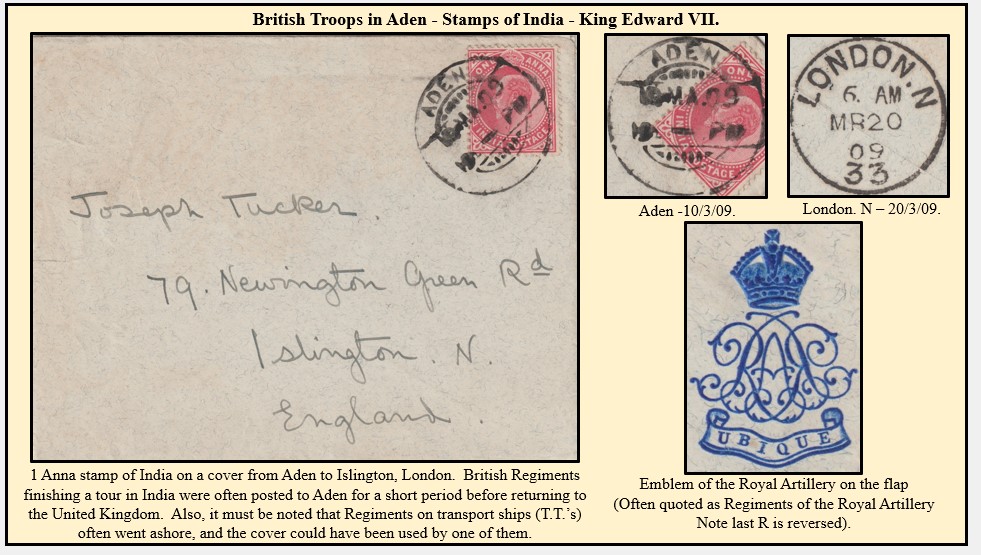 British Troops in Aden - Stamps of India - King Edward VII.
ADEN
ONE ANNA
MA.09
1 PM
POSTAGE
Joseph Tucker.
79. Newington Green Rd
Islington. N.
England.
1 Anna stamp of India on a cover from Aden to Islington, London.  British Regiments
finishing a tour in India were often posted to Aden for a short period before returning to
the United Kingdom.  Also, it must be noted that Regiments on transport ships (T.T.’s)
often went ashore, and the cover could have been used by one of them.
ADEN
ONE
MA.09
1 PM
POSTAGE
Aden -10/3/09.
LONDON. N
6. AM
MR20
09
33
London. N – 20/3/09.
UBIQUE
Emblem of the Royal Artillery on the flap
(Often quoted as Regiments of the Royal Artillery
Note last R is reversed).